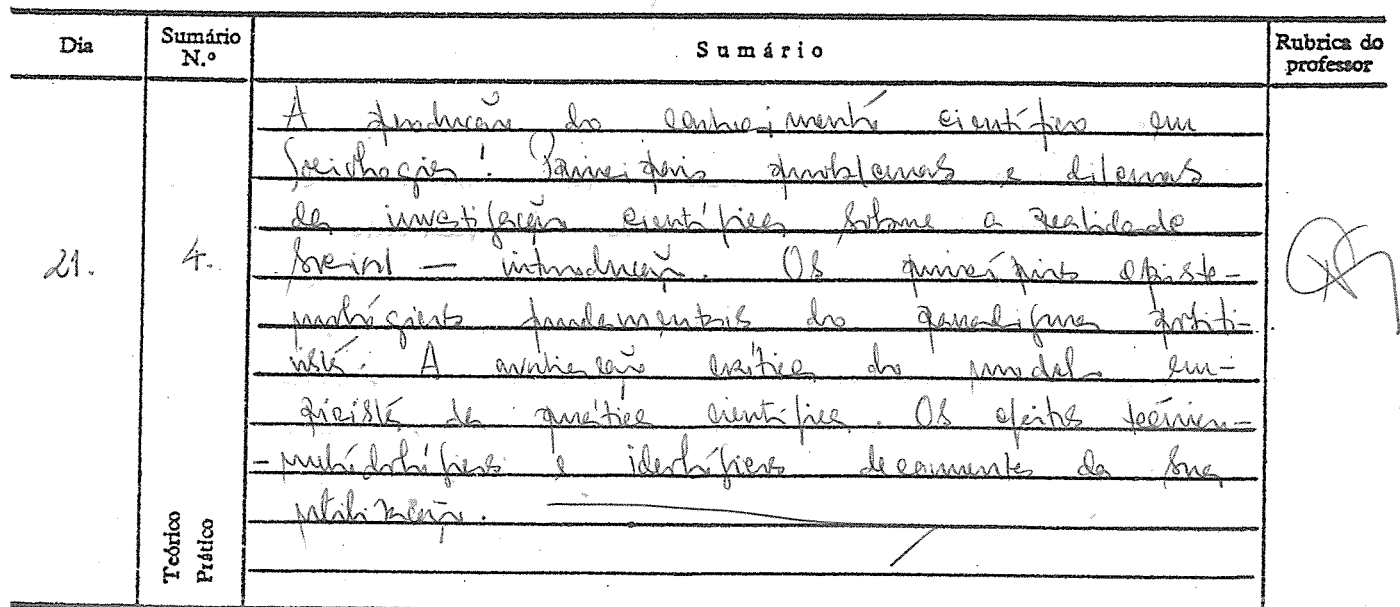 Dia
Sumário N.º
Sumário
Rubrica do professor
21.
4.
A produção do conhecimento científico em
Sociologia: Principais problemas e dilemas
da investigação científica sobre a realidade
social — introdução. Os princípios episte-
mológicos fundamentais do paradigma positi-
vista. A avaliação crítica do modelo em-
pirista da prática científica. Os efeitos técnico-
-metodológicos e ideológicos decorrentes da sua
utilização.
Teórico
Prático